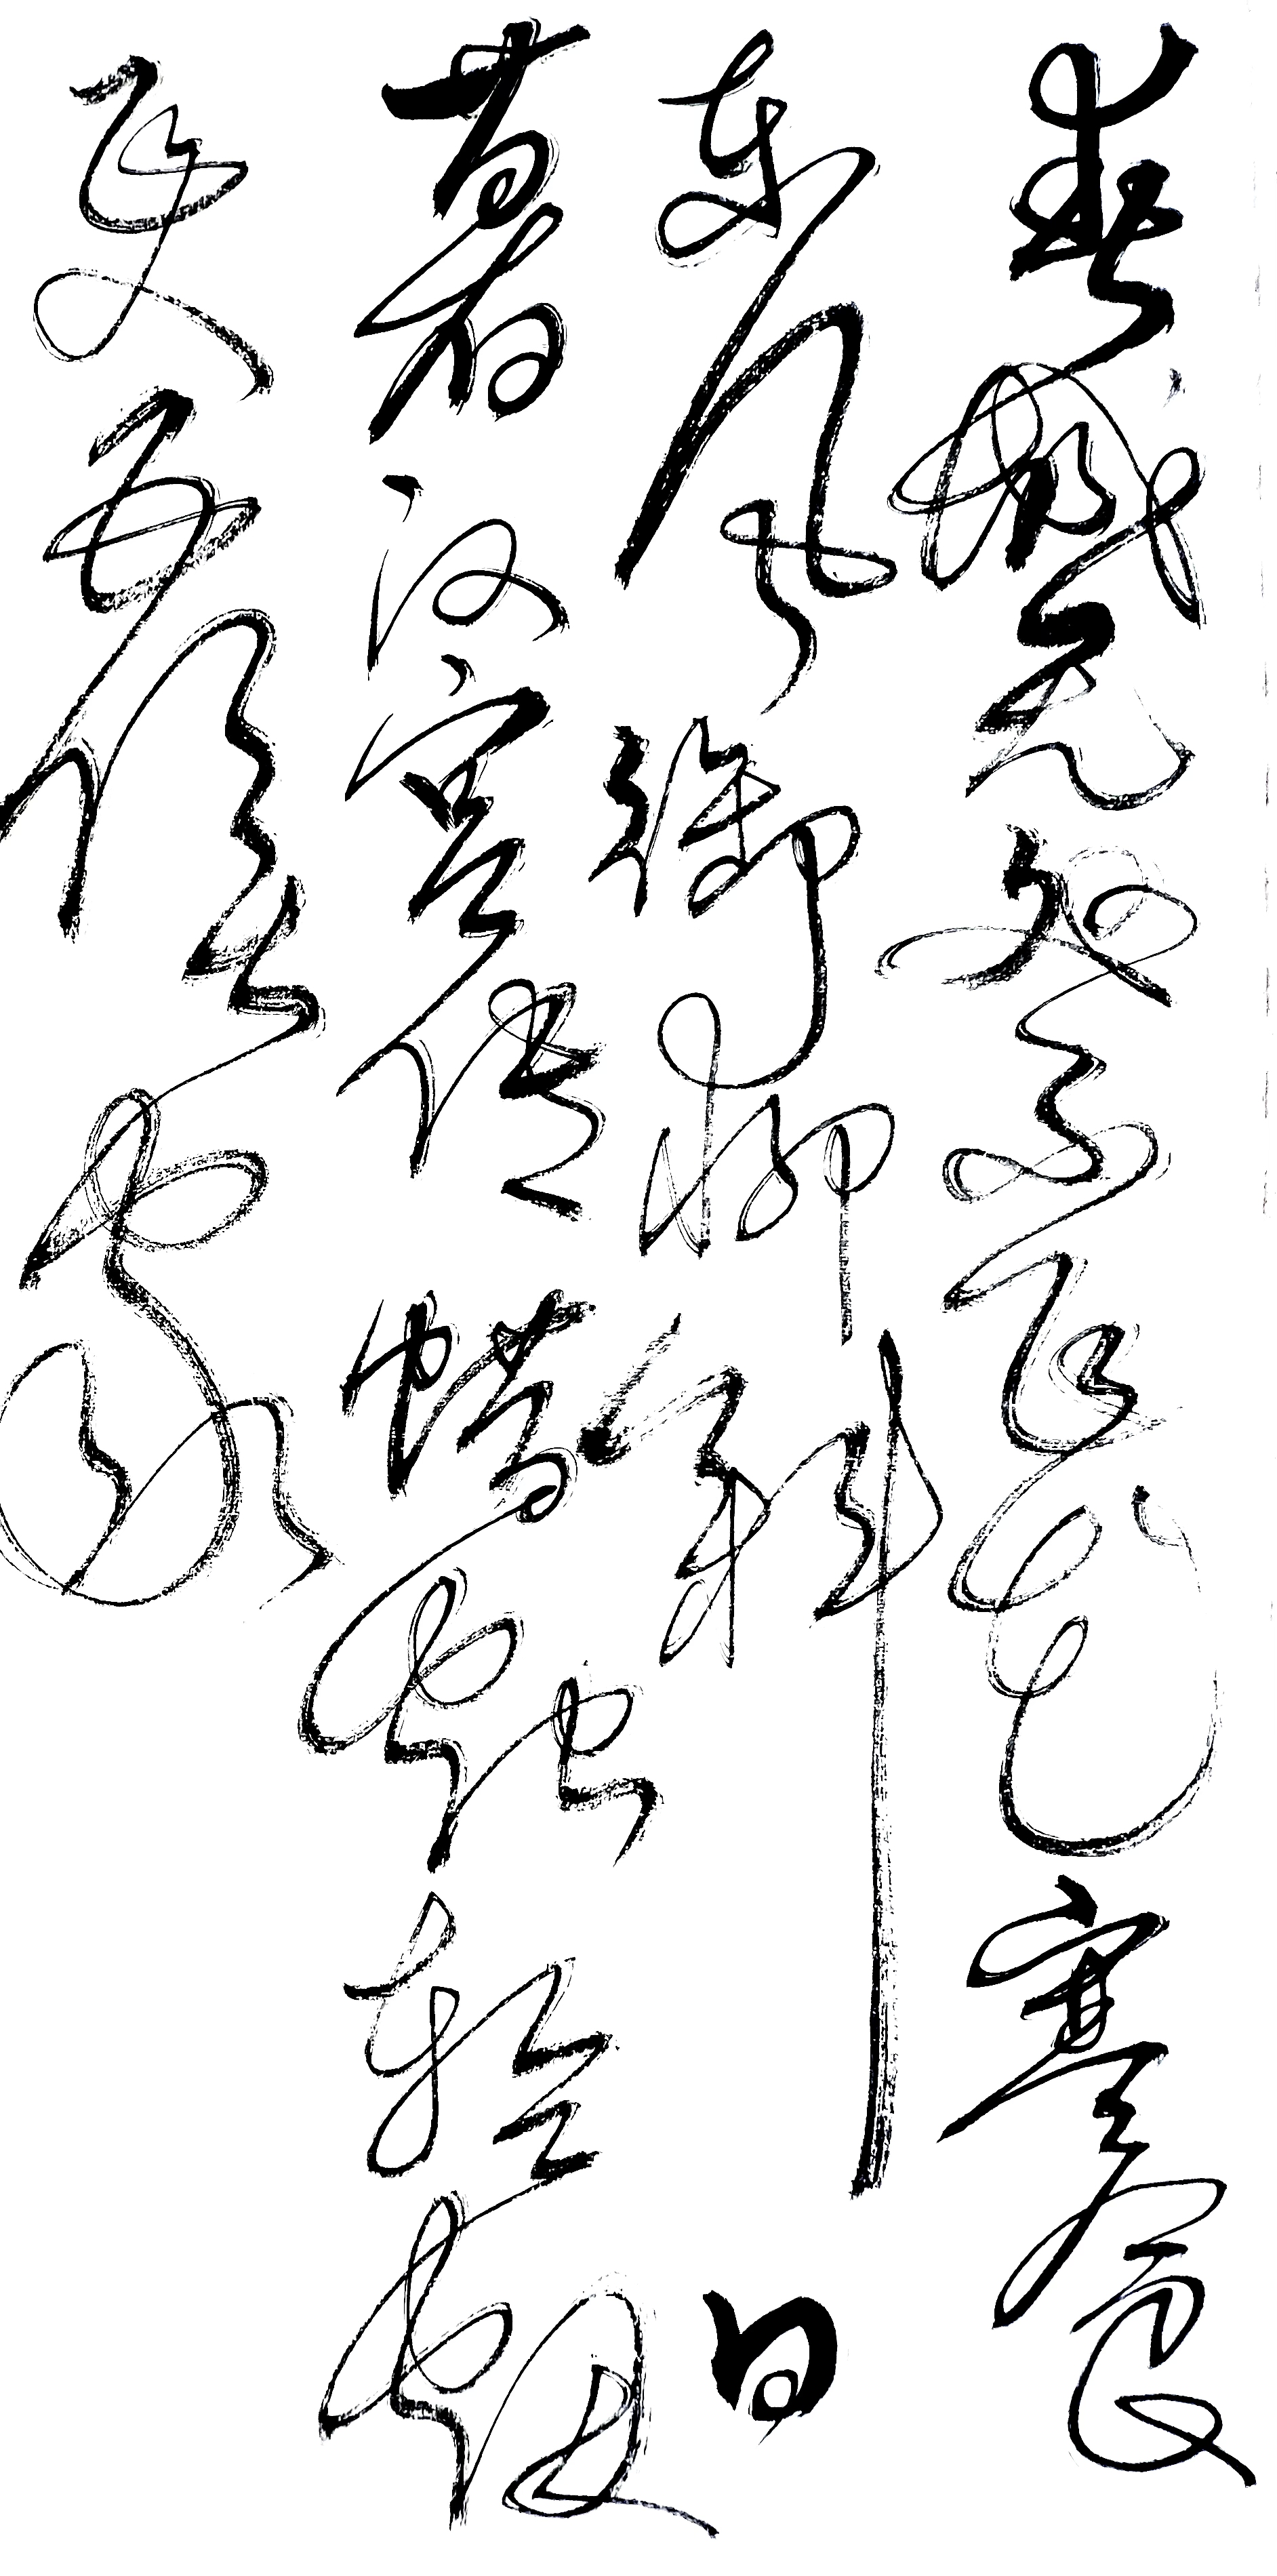 春城无处不飞花寒食
东风御柳斜日
暮汉宫传蜡烛轻烟
飞入五侯家